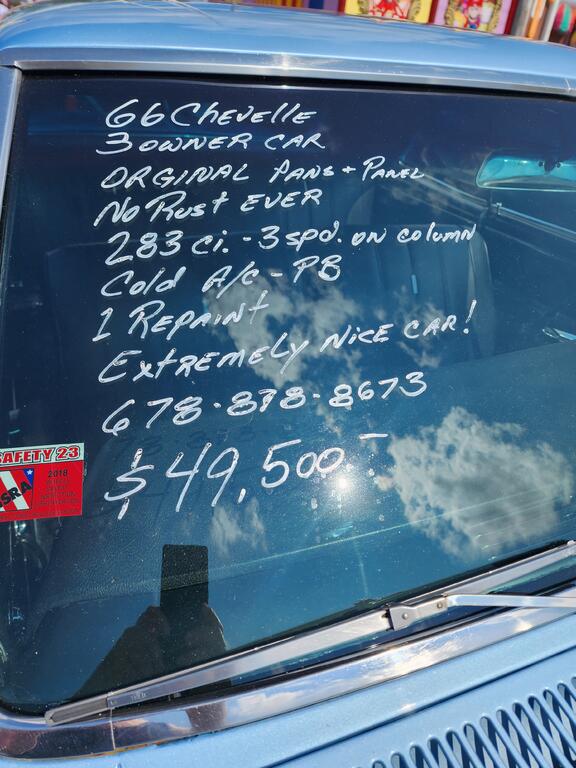 66 Chevelle
3 OWNER CAR
ORGINAL PANS + PANEL
No Rust EVER
283 ci. - 3 spd. ON column
Cold A/C - PB
1 REPAINT
EXTREMELY NICE CAR!
678-878-8673
$49,500-
SAFETY 23
2018
SRA